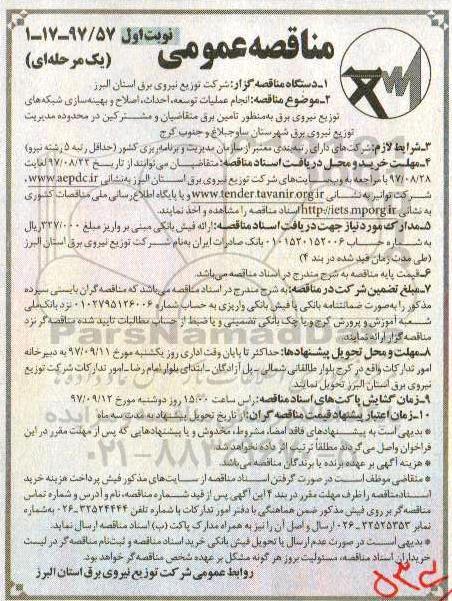 مناقصه عمومی
نوبت اول ۹۷/۵۷-۱۷-۱
(یک مرحله‌ای)
۱-دستگاه مناقصه گزار: شرکت توزیع نیروی برق استان البرز
۲-موضوع مناقصه: انجام عملیات توسعه، احداث، اصلاح و بهینه‌سازی شبکه‌های
توزیع نیروی برق به‌منظور تامین برق متقاضیان و مشترکین در محدوده مدیریت
توزیع نیروی برق شهرستان ساوجبلاغ و جنوب کرج
۳-شرایط لازم: شرکت‌های دارای رتبه‌بندی معتبر از سازمان مدیریت و برنامه‌ریزی کشور (حداقل رتبه ۵ رشته نیرو)
۴-مهلت خرید و محل دریافت اسناد مناقصه: متقاضیان می‌توانند از تاریخ ۹۷/۰۸/۲۲ لغایت
۹۷/۰۸/۲۸ با مراجعه به وب سایت‌های شرکت توزیع نیروی برق استان البرز به نشانی www.aepdc.ir،
شرکت توانیر به نشانی www.tender.tavanir.org.ir و یا پایگاه اطلاع‌رسانی ملی مناقصات کشوری
به نشانی http://iets.mporg.ir اسناد مناقصه را مشاهده و اخذ نمایند.
۵-مدارک مورد نیاز جهت دریافت اسناد مناقصه: ارائه فیش بانکی مبنی بر واریز مبلغ ۳۲۷/۰۰۰ ریال
به شماره حساب ۰۱۰۱۵۲۰۱۵۲۰۰۶ بانک صادرات ایران به‌نام شرکت توزیع نیروی برق استان البرز
(طی مدت زمان قید شده در بند ۴)
۶-قیمت پایه مناقصه به شرح مندرج در اسناد مناقصه می‌باشد.
۷-مبلغ تضمین شرکت در مناقصه: به شرح مندرج در اسناد مناقصه می‌باشد که مناقصه‌گران بایستی سپرده
مذکور را به‌صورت ضمانتنامه بانکی یا فیش بانکی واریزی به حساب شماره ۰۱۰۲۷۹۵۱۲۶۰۰۶ نزد بانک ملی
شعبه آموزش و پرورش کرج و یا چک بانکی تضمینی و یا ضبط از حساب مطالبات تایید شده مناقصه‌گر نزد
مناقصه‌گزار ارائه نمایند.
۸-مهلت و محل تحویل پیشنهادها: حداکثر تا پایان وقت اداری روز یکشنبه مورخ ۹۷/۰۹/۱۱ به دبیرخانه
امور تدارکات واقع در کرج بلوار طالقانی شمالی-پل آزادگان-ابتدای بلوار امام رضا-امور تدارکات شرکت توزیع
نیروی برق استان البرز تحویل نمایند.
۹-زمان گشایش پاکت‌های اسناد مناقصه: راس ساعت ۱۵:۰۰ روز دوشنبه مورخ ۹۷/۰۹/۱۲
۱۰-زمان اعتبار پیشنهاد قیمت مناقصه گران: از تاریخ تحویل پیشنهاد به مدت سه ماه
* بدیهی است به پیشنهادهای فاقد امضا، مشروط، مخدوش و یا پیشنهادهایی که پس از مهلت مقرر در این
فراخوان واصل می‌گردند مطلقا ترتیب اثر داده نخواهد شد.
* هزینه آگهی بر عهده برنده یا برندگان مناقصه می‌باشد.
* متقاضی موظف است در صورت گرفتن اسناد مناقصه از سایت‌های مذکور فیش پرداخت هزینه خرید
اسناد مناقصه را ظرف مهلت مقرر در بند ۴ این آگهی پس از قید شماره مناقصه، نام و آدرس و شماره تماس
مناقصه‌گر بر روی فیش مذکور ضمن هماهنگی با دفتر امور تدارکات با شماره تلفن ۳۲۵۲۴۴۴۴-۰۲۶ به‌شماره
نمابر ۳۲۵۲۵۳۵۳-۰۲۶ ارسال و اصل آن را نیز به همراه مدارک پاکت (ب) اسناد مناقصه ارسال نماید.
* بدیهی است در صورت عدم ارسال یا تحویل فیش بانکی خرید اسناد مناقصه و ثبت نام مناقصه‌گر در لیست
خریداران اسناد مناقصه، مسئولیت بروز هر گونه مشکل بر عهده شخص مناقصه‌گر خواهد بود.
روابط عمومی شرکت توزیع نیروی برق استان البرز